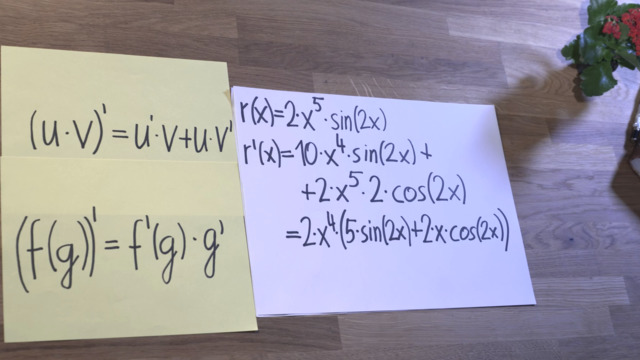 (u·v)' = u'·v+u·v'
(f(g))' = f'(g)·g'
r(x)=2·x⁵·sin(2x)
r'(x)=10·x⁴·sin(2x)+
+2·x⁵·2·cos(2x)
=2·x⁴·(5·sin(2x)+2·x·cos(2x))